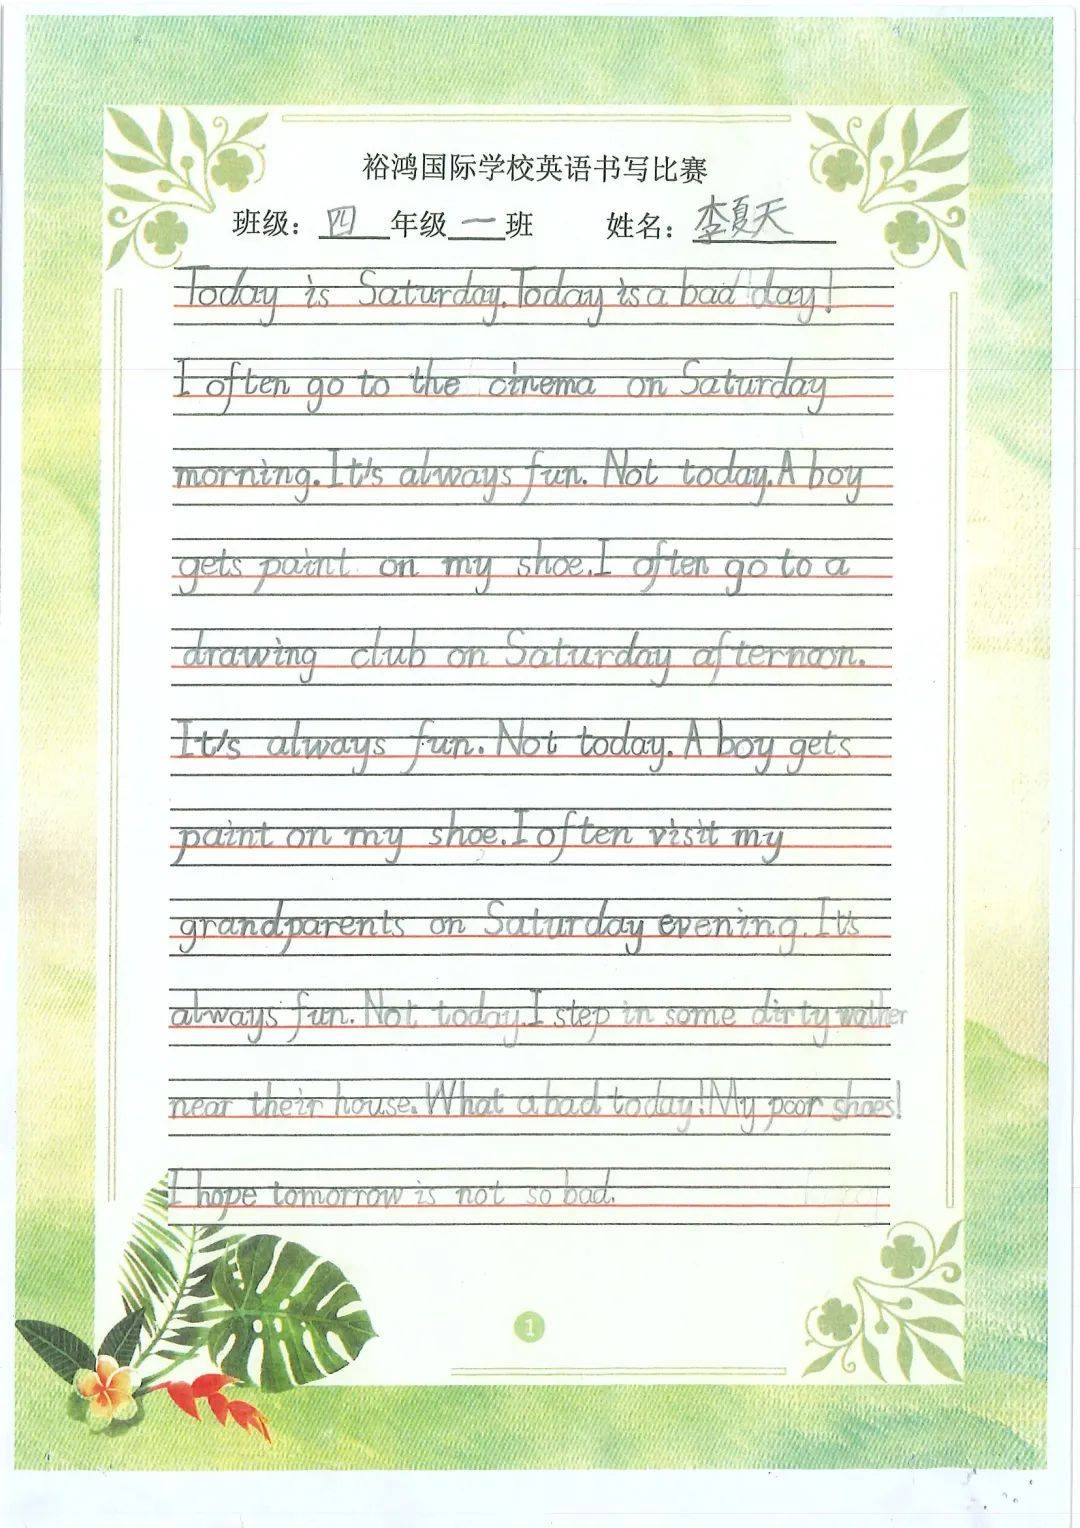 裕鸿国际学校英语书写比赛
班级：四年级一班 姓名：李夏天
Today is Saturday. Today is a bad day!
I often go to the cinema on Saturday
morning. It's always fun. Not today. A boy
gets paint on my shoe. I often go to a
drawing club on Saturday afternoon.
It's always fun. Not today. A boy gets
paint on my shoe. I often visit my
grandparents on Saturday evening. It's
always fun. Not today. I step in some dirty wather
near their house. What a bad today! My poor shoes!
I hope tomorrow is not so bad.
1